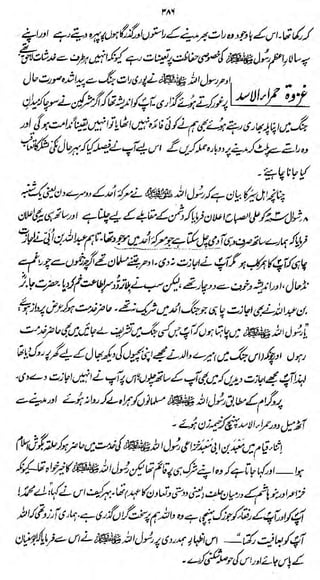 ۳۸۶
کر رکھا تھا۔ اس کے باوجود وہ رات بھر مدینے کے راستوں اور گذرگاہوں پر پہرہ دیتے رہے اور اپنے
سپہ سالارِ اعظم رسول اللہ ﷺ کی خصوصی حفاظت پر تعینات رہے کیونکہ انہیں ہر طرف سے خدشات لاحق تھے۔
غزوۂ حمراء الاسد
ادھر رسول اللہ ﷺ نے پوری رات جنگ سے پیدا شدہ صورت حال
پر غور کرتے ہوئے گذاری۔ آپ کو اندیشہ تھا کہ اگر مشرکین نے سوچا کہ میدانِ
جنگ میں اپنا پلہ بھاری رہتے ہوئے بھی ہم نے کوئی فائدہ نہیں اٹھایا تو انہیں یقیناً ندامت ہوگی اور
وہ راستے سے پلٹ کر مدینے پر دوبارہ حملہ کریں گے اس لیے آپ نے فیصلہ کیا کہ بہرحال مکی لشکر کا تعاقب
کیا جانا چاہیے۔
چنانچہ اہلِ سیر کا بیان ہے کہ رسول اللہ ﷺ نے معرکۂ اُحد کے دوسرے دن یعنی یک شنبہ
۸ شوال ۳ھ کو علی الصباح اعلان فرمایا کہ دشمن کے مقابلے کے لیے چلنا ہے اور ساتھ ہی یہ بھی اعلان
فرمایا کہ ہمارے ساتھ صرف وہی آدمی چل سکتا ہے جو معرکۂ اُحد میں موجود تھا۔ تاہم عبداللہ بن اُبی نے اجازت
چاہی کہ آپ کا ہمرکاب ہو مگر آپ نے اجازت نہ دی۔ ادھر جتنے مسلمان تھے اگرچہ زخموں سے چور، غم سے
نڈھال، اور اندیشہ و خوف سے دوچار تھے، لیکن سب نے بلا تردد سرِ اطاعت خم کر دیا۔ حضرت جابرؓ
بن عبداللہ نے بھی اجازت چاہی جو جنگ اُحد میں شریک نہ تھے۔ حاضرِ خدمت ہو کر عرض پرداز ہوئے،
یا رسول اللہ ﷺ میں چاہتا ہوں کہ آپ جس کسی جنگ میں تشریف لے جائیں میں بھی حاضرِ خدمت
رہوں اور چونکہ (اس جنگ میں) میرے والد نے مجھے اپنی بچیوں کی دیکھ بھال کے لیے گھر پر روک دیا تھا
لہٰذا آپ مجھے اجازت دیدیں کہ میں بھی آپ کے ساتھ چلوں۔ اس پر آپ نے انہیں اجازت دے دی۔
پروگرام کے مطابق رسول اللہ ﷺ مسلمانوں کو ہمراہ لے کر روانہ ہوئے اور مدینے سے
آٹھ میل دور حمراء الاسد پہنچ کر خیمہ زن ہوئے۔
اثناء قیام میں معبد بن ابی معبد خزاعی رسول اللہ ﷺ کی خدمت میں حاضر ہو کر حلقہ بگوش اسلام
ہوا — اور کہا جاتا ہے کہ وہ اپنے شرک ہی پر قائم تھا لیکن رسول اللہ ﷺ کا خیر خواہ تھا، کیونکہ
خزاعہ اور بنو ہاشم کے درمیان حلف (یعنی دوستی و تعاون کا عہد) تھا۔ بہر کیف اس نے کہا: اے محمدؐ!
آپ کو اور آپ کے رفقاء کو جو زک پہنچی ہے وہ واللہ ہم پر سخت گراں گذری ہے، ہماری آرزو تھی اللہ
آپ کو بعافیت رکھتا — اس اظہارِ ہمدردی پر رسول اللہ ﷺ نے اس سے فرمایا کہ ابوسفیان
کے پاس جائے اور اس کی حوصلہ شکنی کرے۔